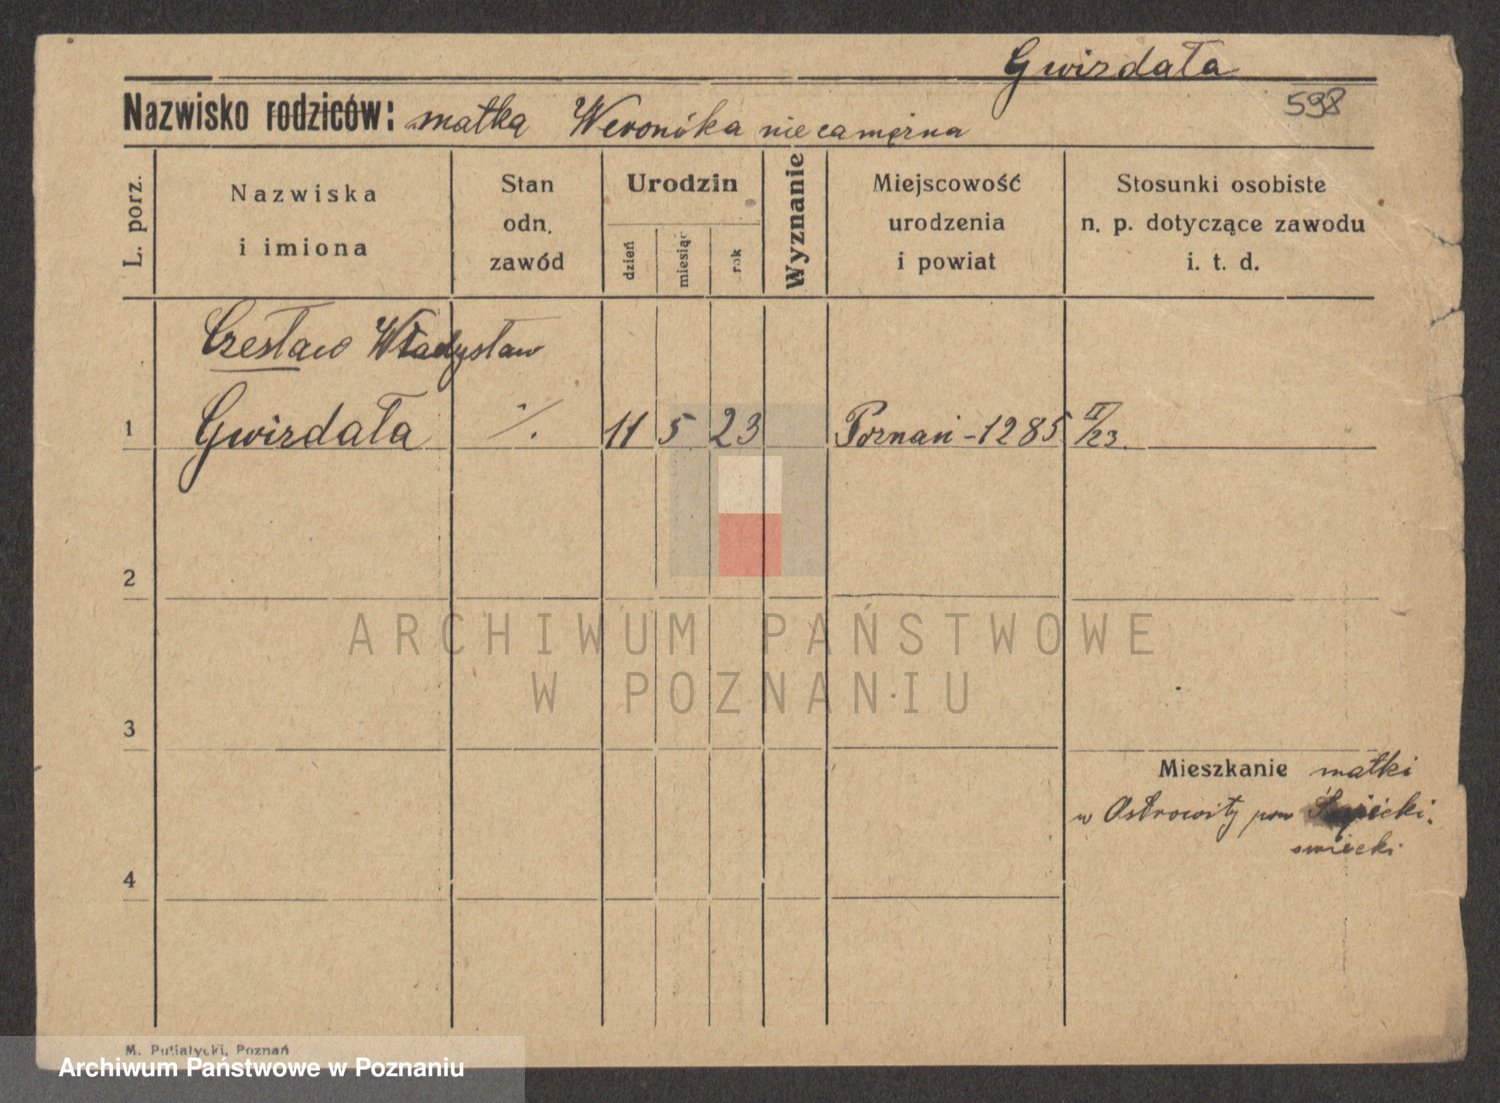 Gwizdała
598
Nazwisko rodziców: matka Weronika niezamężna
L. porz.
Nazwiska
i imiona
Stan
odn.
zawód
Urodzin
dzień
miesiąc
rok
Wyznanie
Miejscowość
urodzenia
i powiat
Stosunki osobiste
n. p. dotyczące zawodu
i. t. d.
Czesław Władysław
1 Gwizdała ·/. 11 5 23 Poznań - 1285 II/23.
2
ARCHIWUM PAŃSTWOWE
W POZNANIU
3
Mieszkanie matki
w Ostrowity pow
swiecki
4
M. Putiatycki, Poznań
Archiwum Państwowe w Poznaniu